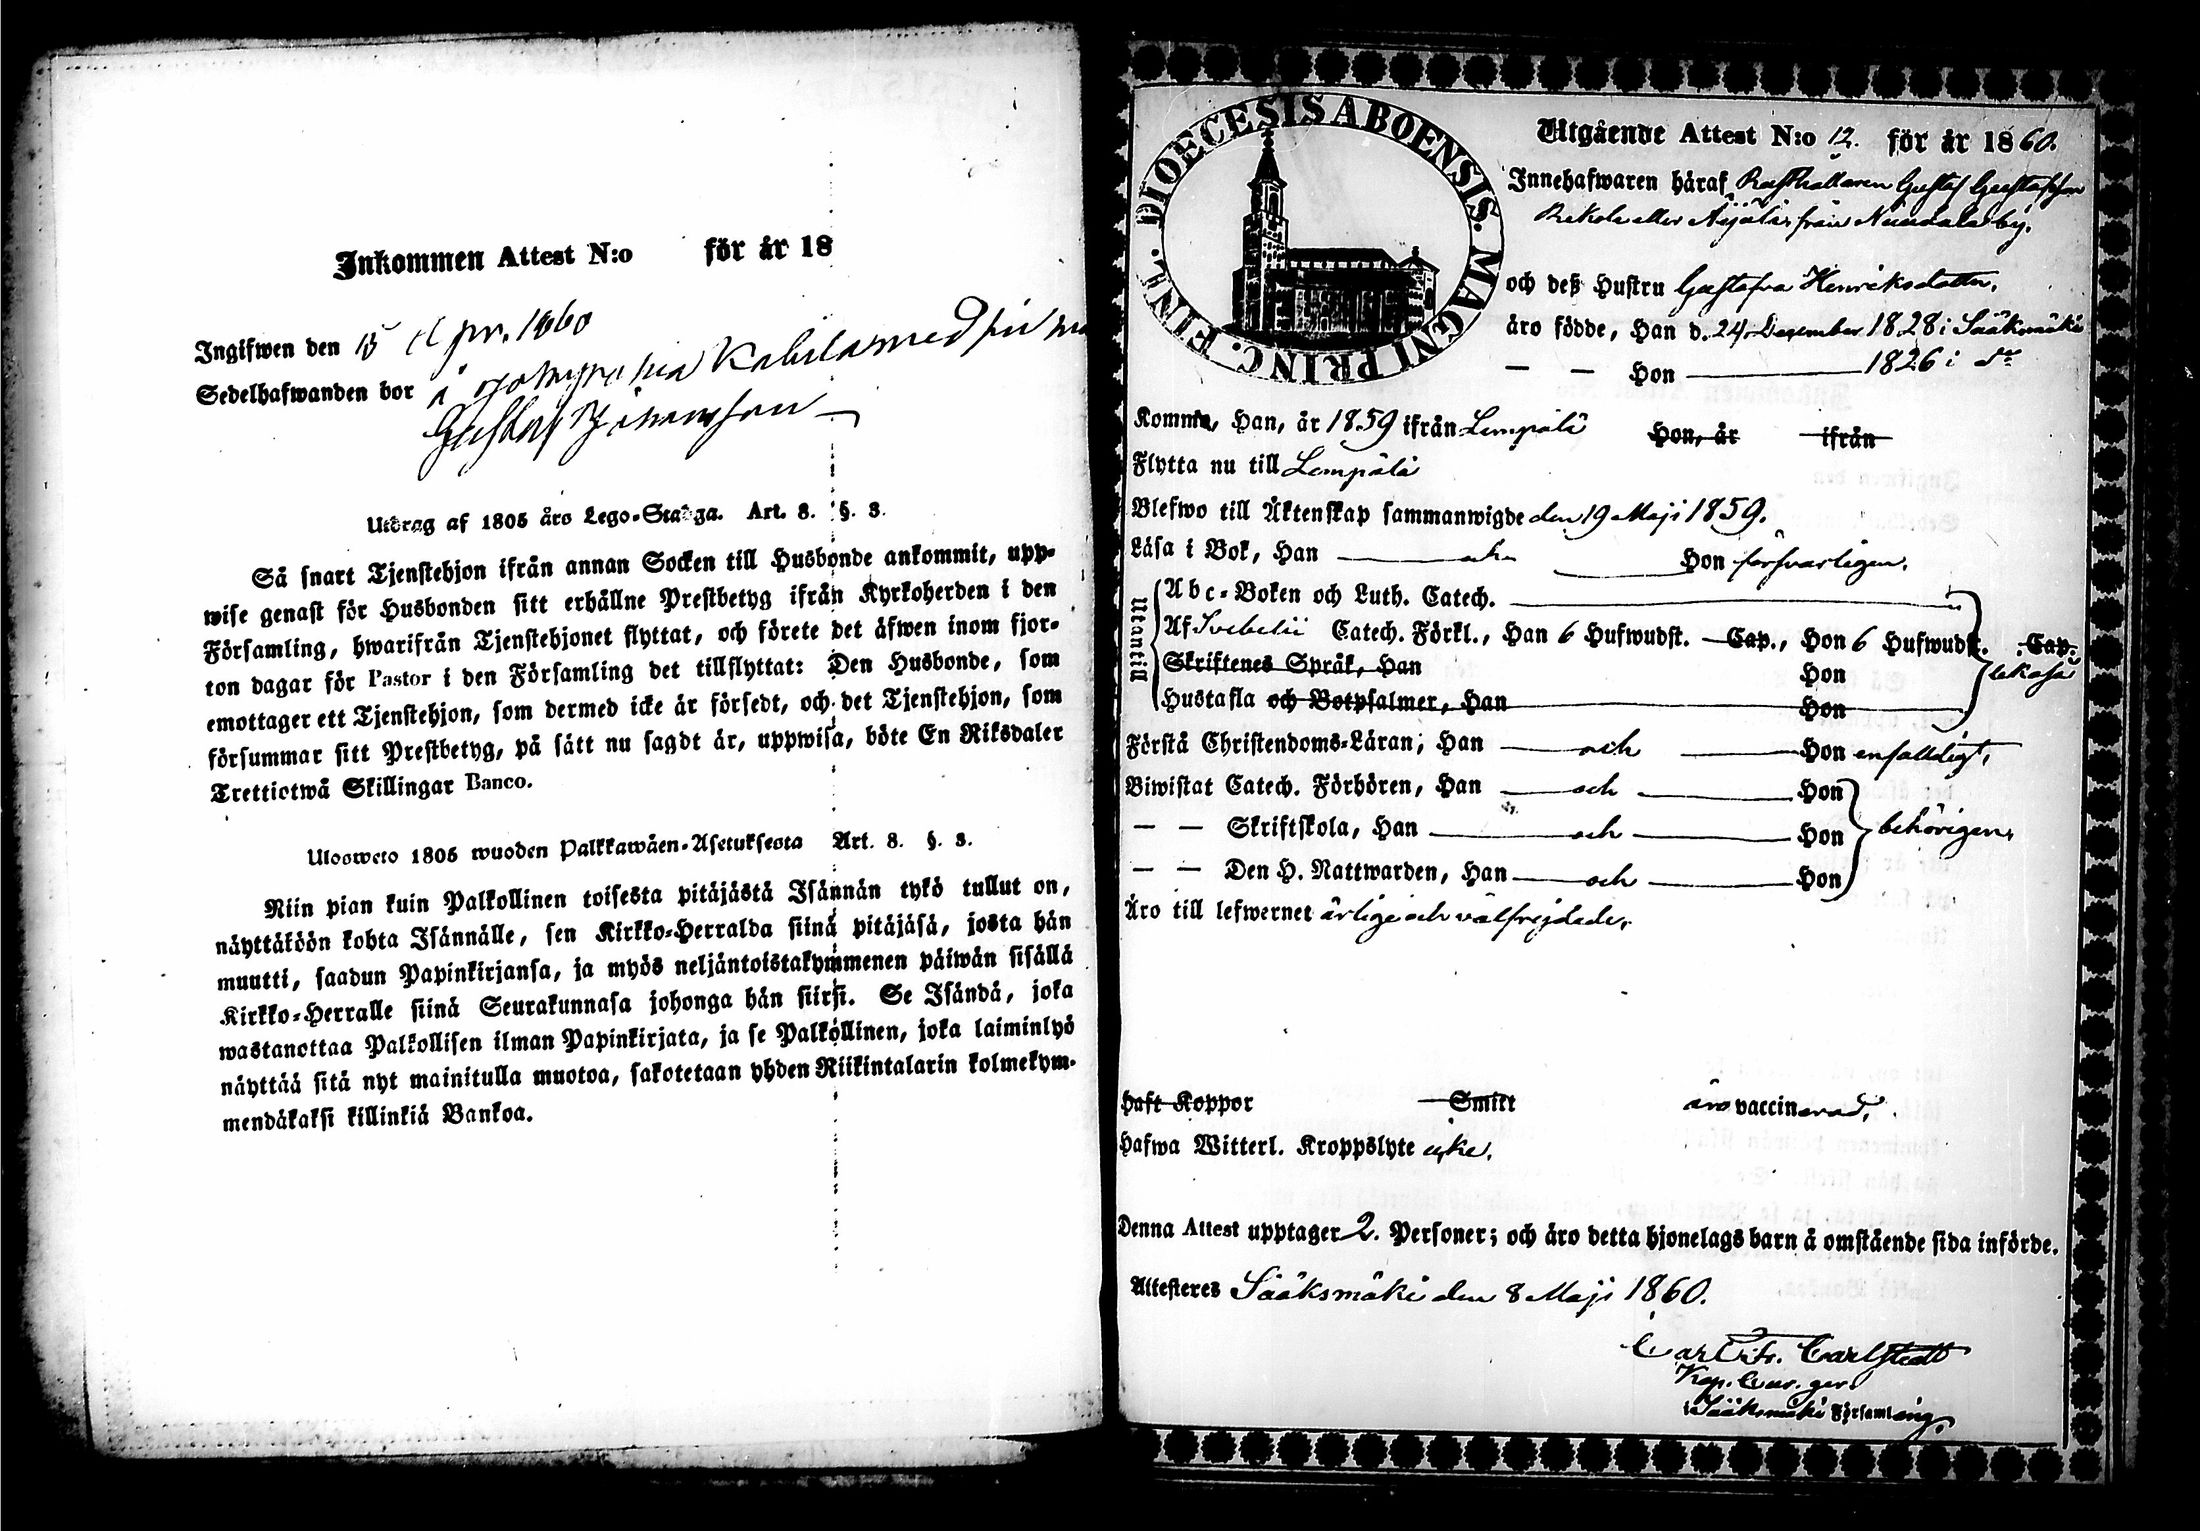 Inkommen Attest N:o för år 18
Ingifwen den 15 Apr. 1860
Sedelhafwanden bor å
Gustaf Johansson
Utdrag af 1805 års Lego-Stadga. Art. 8. §. 3.
Så snart Tjenstehjon ifrån annan Socken till Husbonde ankommit, upp-
wise genast för Husbonden sitt erhållne Prestbetyg ifrån Kyrkoherden i den
Församling, hwarifrån Tjenstehjonet flyttat, och förete det äfwen inom fjor-
ton dagar för Pastor i den Församling det tillflyttat: Den Husbonde, som
emottager ett Tjenstehjon, som dermed icke är försedt, och det Tjenstehjon, som
försummar sitt Prestbetyg, på sätt nu sagdt är, uppwisa, böte En Riksdaler
Trettiotwå Skillingar Banco.
Ulosweto 1805 wuoden Palkkawäen-Asetuksesta Art. 8. §. 3.
Niin pian kuin Palkollinen toisesta pitäjästä Isännän tykö tullut on,
näyttäköön kohta Isännälle, sen Kirkko-Herralda siinä pitäjäsä, josta hän
muutti, saadun Papinkirjansa, ja myös neljäntoistakymmenen päiwän sisällä
Kirkko-Herralle siinä Seurakunnasa johonga hän siirsi. Se Isändä, joka
wastanottaa Palkollisen ilman Papinkirjata, ja se Palkollinen, joka laiminlyö
näyttää sitä nyt mainitulla muotoa, sakotetaan yhden Riikintalarin kolmekym-
mendäkaksi killinkiä Bankoa.
DIOECESIS ABOENSIS. MAGNI PRINC. FINL.
Utgående Attest N:o 12. för år 1860.
Innehafwaren häraf Rusthållaren Gustaf Gustafsson
Rekola eller Äijälä från by.
och deß Hustru Gustafva Henriksdotter,
äro födde, Han d. 24 December 1828 i Sääksmäki
— — Hon 1826 i do
Komma, Han, år 1859 ifrån Lempälä Hon, år ifrån
Flytta nu till Lempälä
Blefwo till Äktenskap sammanwigde den 19 Maji 1859.
Läsa i Bok, Han och Hon försvarligen.
Utantill
Abc-Boken och Luth. Catech.
Af Svebelii Catech. Förkl., Han 6 Hufwudst. Cap., Hon 6 Hufwudst. Cap.
Skriftenes Språk, Han Hon
Hustafla och Botpsalmer, Han Hon
Förstå Christendoms-Läran, Han och Hon enfaldigt,
Biwistat Catech. Förhören, Han och Hon
— — Skriftskola, Han och Hon behörigen,
— — Den H. Nattwarden, Han och Hon
Äro till lefwernet ärlige och välfrejdade,
Haft Koppor Smitt äro vaccinerad,
Hafwa Witterl. Kroppslyte icke.
Denna Attest upptager 2. Personer; och äro detta hjonelags barn å omstående sida införde.
Attesteres Sääksmäki den 8 Maji 1860.
Carl Fr. Carlstedt
Kap. Cur. ger.
i Sääksmäki Församling.